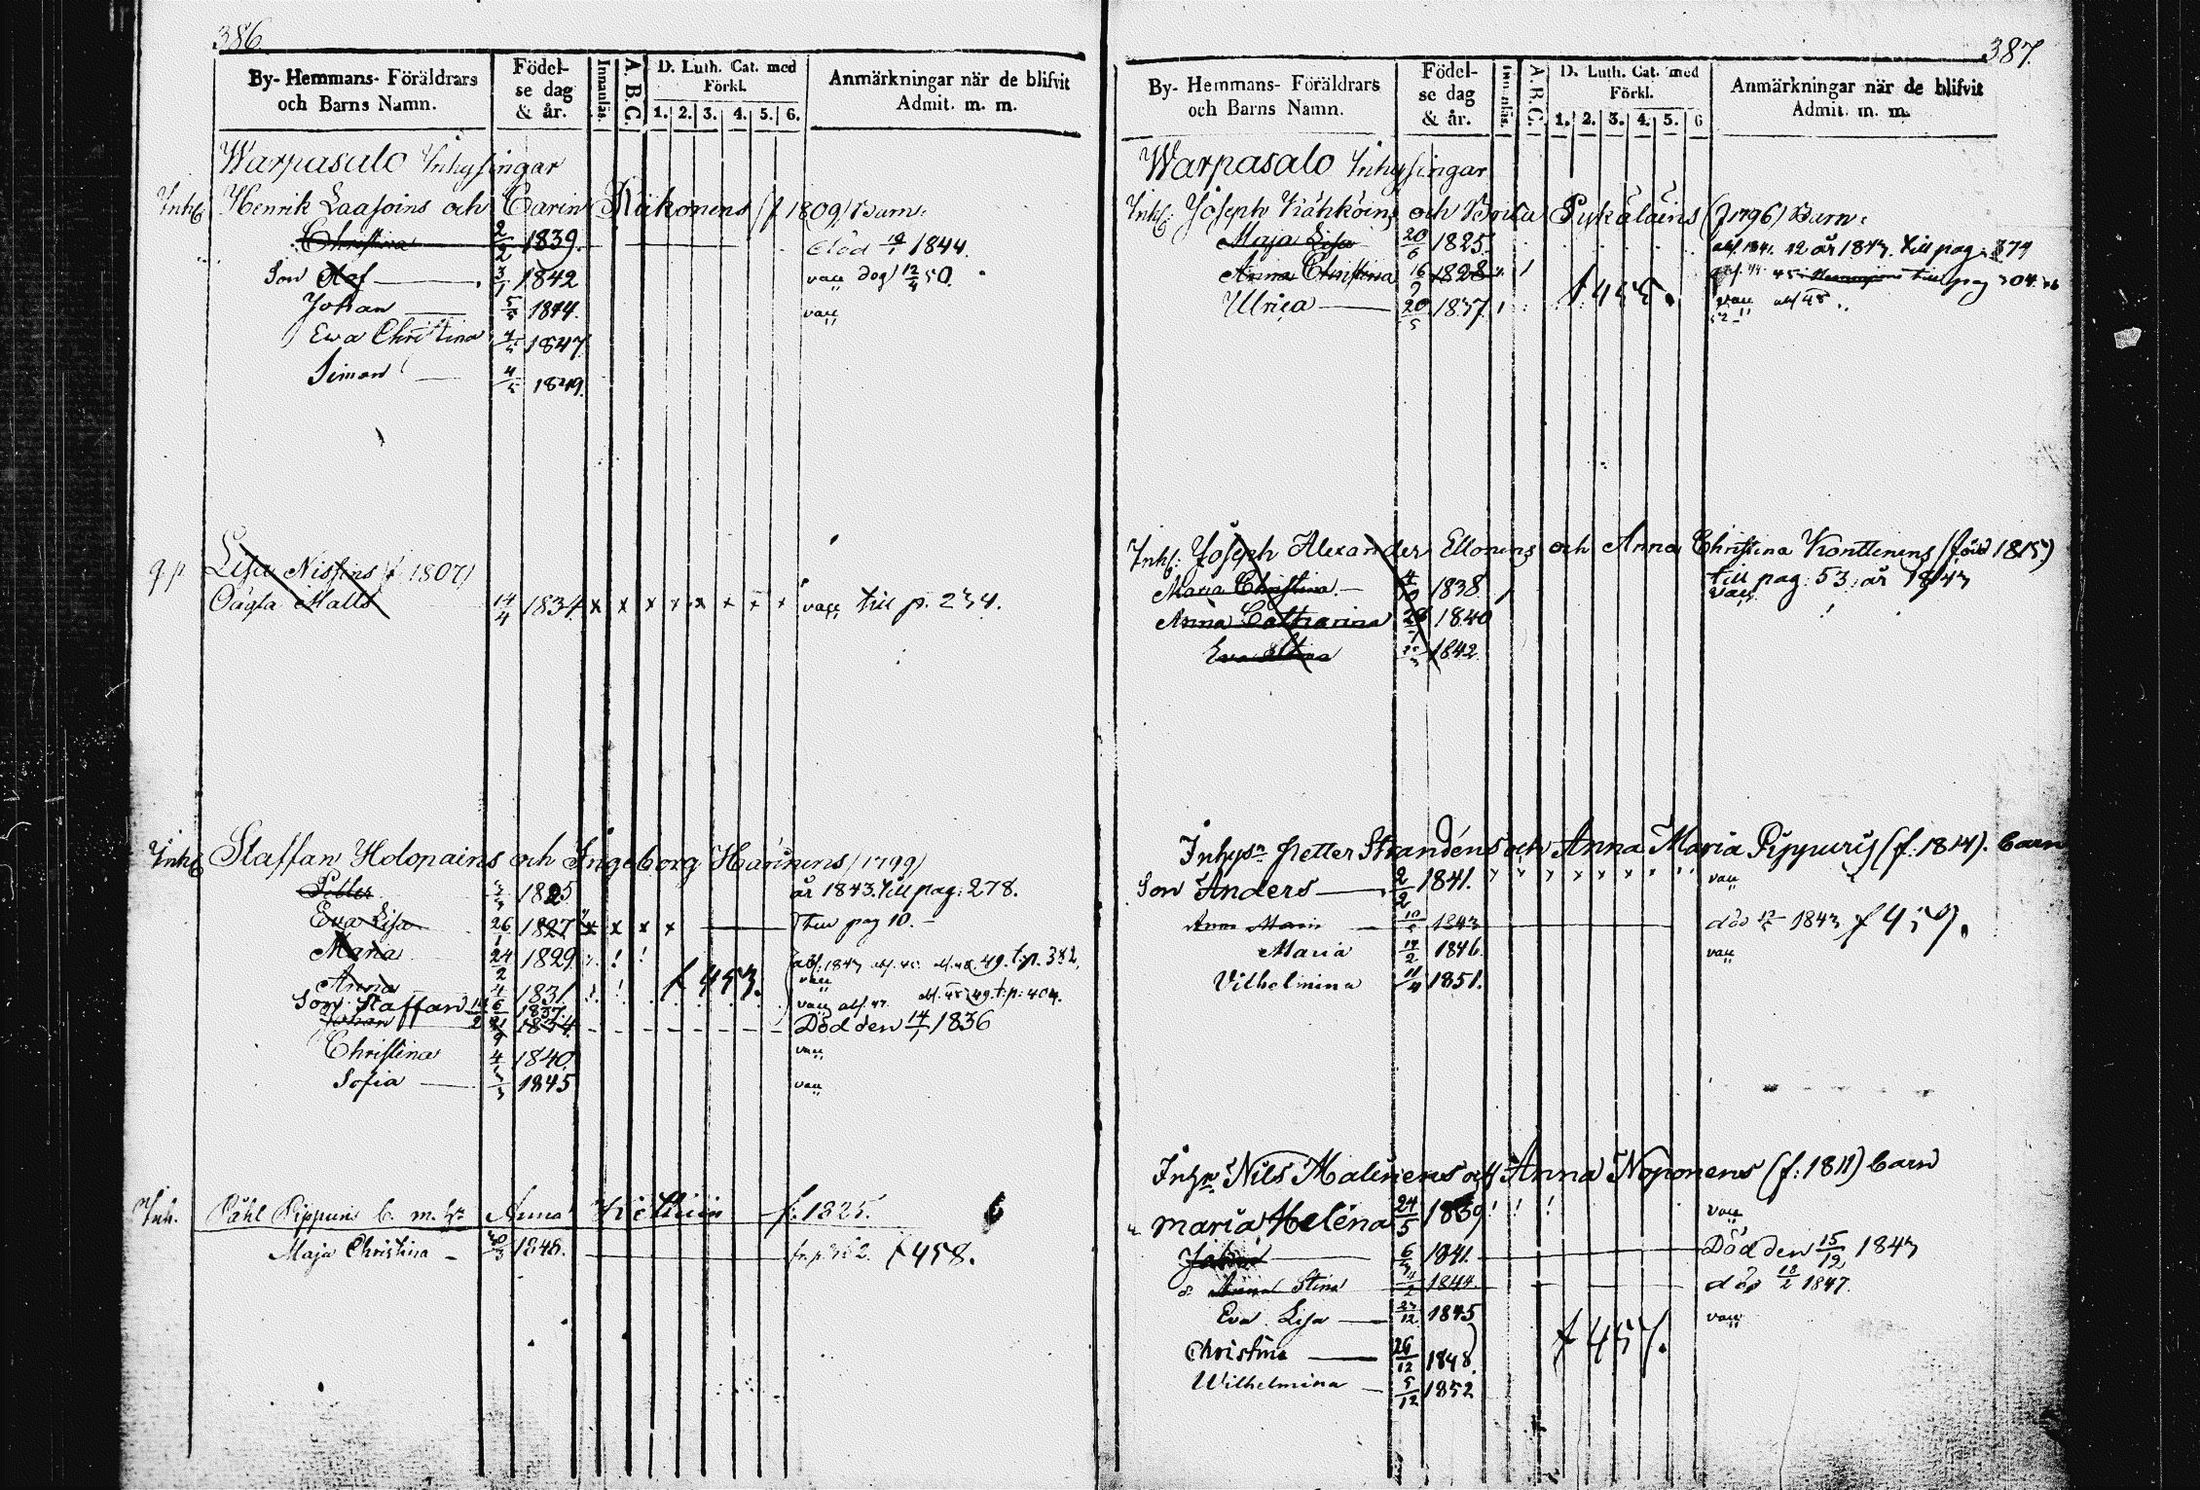 386
By- Hemmans- Föräldrars och Barns Namn.
Födel- se dag & år.
Innanläs.
A. B. C.
D. Luth. Cat. med Förkl.
1. 2. 3. 4. 5. 6.
Anmärkningar när de blifvit Admit. m. m.
Warpasalo Inhysingar
Inh: Henrik Laasoins och Carin Kukonens (f 1809) Barn:
Christina 2/2 1839. död 19/1 1844.
Son Olof 3/1 1842 vacc dog 12/4 50.
Johan 5/5 1844. vacc
Ewa Christina 4/4 1847
Simon 4/5 1849.
Lisa Nissins (f 1807)
Oägta Matts 14/4 1834 x x x x x x x x vacc till p. 234.
Inh: Staffan Holopains och Ingeborg Harinens (1799)
Petter 1825 år 1843. till pag: 278.
Eva Lisa 26/1 1827 x x x x till pag 10.
Maria 24/2 1829 49. t. p. 382,
Anna 1831 f 453. vacc
Son Staffan 1837. vacc 49. t: p: 404.
Johan 1834 Död den 14/7 1836
Christina 1840 vacc
Sofia 1845 vacc
Inh. Påhl Pippuris b. m. h: Anna f. 1825.
Maja Christina 1848. f 458.
387.
By- Hemmans- Föräldrars och Barns Namn.
Födel- se dag & år.
Innanläs.
A. B. C.
D. Luth. Cat. med Förkl.
1. 2. 3. 4. 5. 6
Anmärkningar när de blifvit Admit. m. m.
Warpasalo Inhysingar
Inh: Joseph Kähköins och Brita Pykäläins (f 1796) Barn:
Maja Lisa 20/6 1825. år 1843. till pag: 374
Anna Christina 16/9 1828 till pag 304.
Ulrica 20/5 1837. f 455. vacc
Inh: Joseph Alexander Ellonens och Anna Christina Konttinens (född 1815)
till pag: 53: år 1843
Maria Christina 1838 vacc
Anna Catharina 1840
Eva Stina 1842
Inhysn Petter Strandéns och Anna Maria Pippuris (f: 1814). barn
Son Anders 2/2 1841. vacc
Anna Maria 1843 död 1843 f 457.
Maria 1846. vacc
Vilhelmina 11/4 1851.
Inhn Nils Malinens och Anna Noponens (f: 1811) barn
Maria Heléna 24/5 1839 vacc
Johan 1841. Död den 15/12 1843
Anna Stina 1844. död 18/2 1847.
Eva Lisa 27/12 1845 vacc
Christina 26/12 1848. f 457.
Wilhelmina 5/12 1852